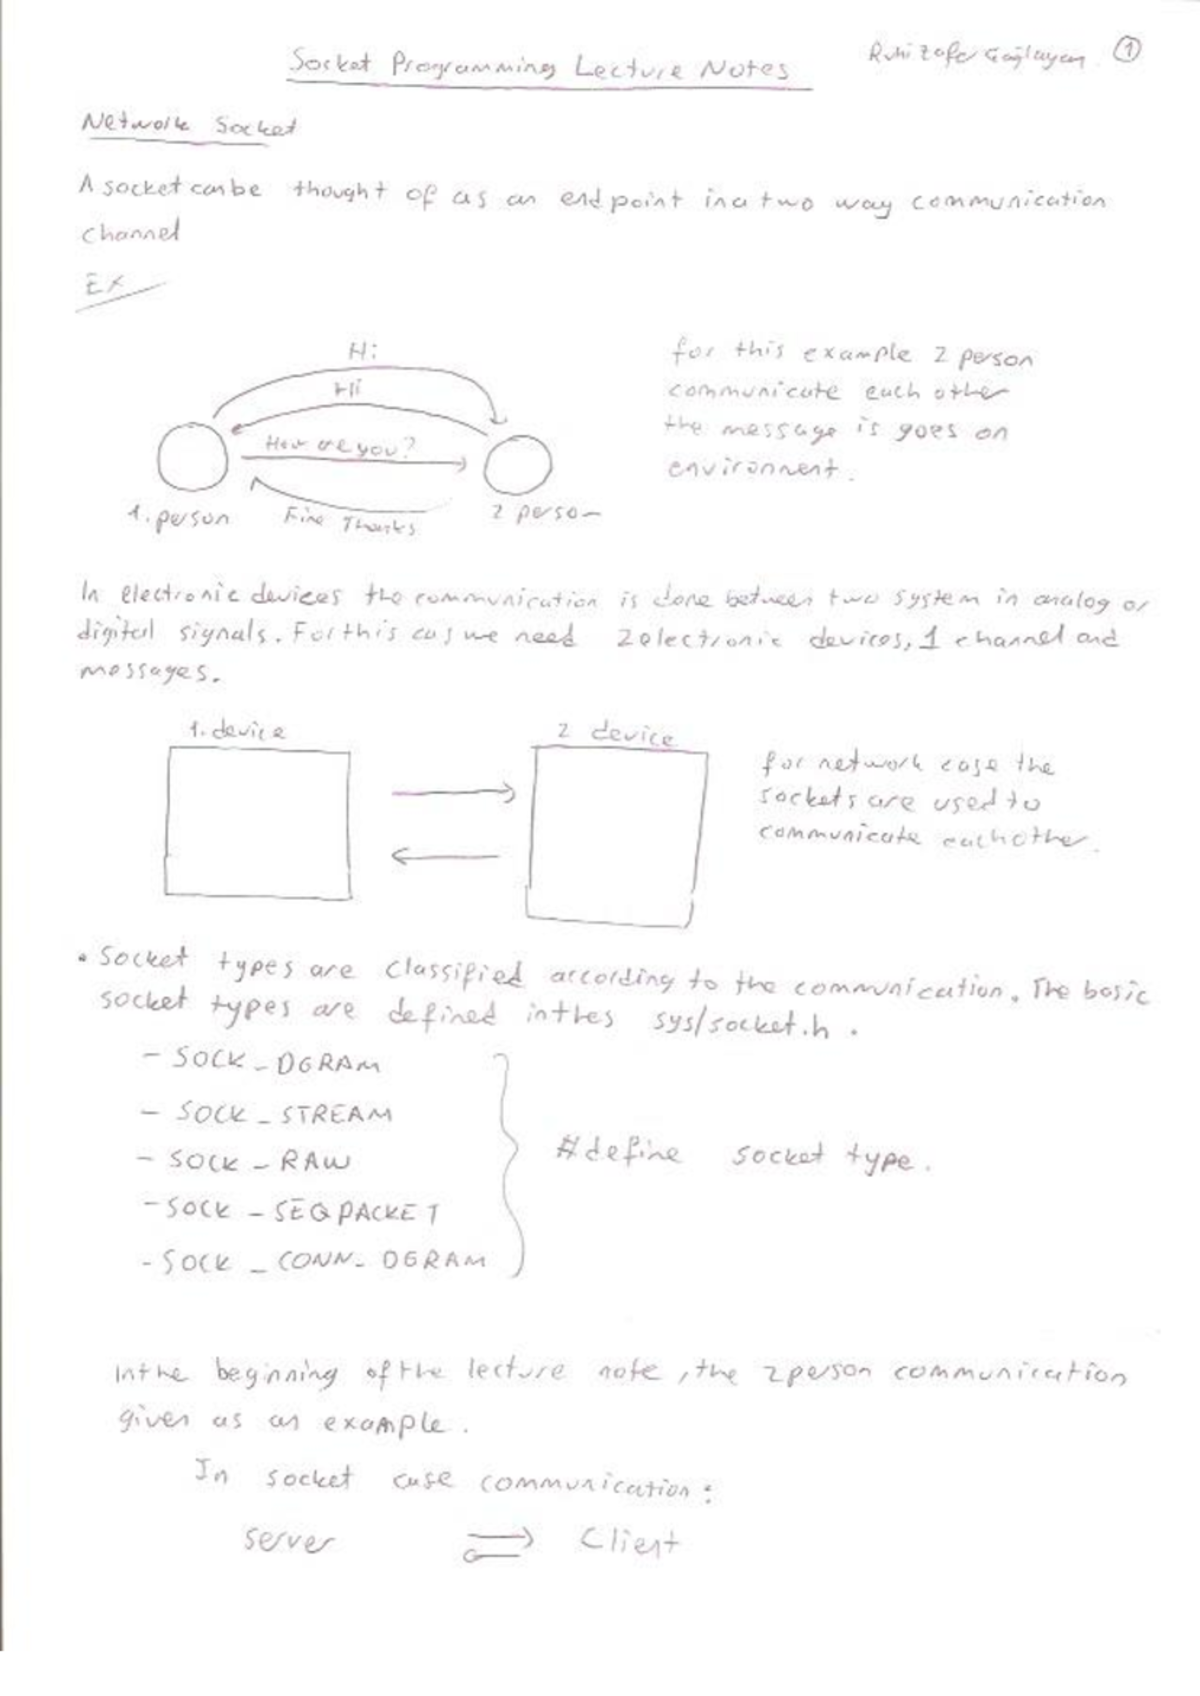 Socket Programming Lecture Notes
Ruhi Zafer Çağlayan 1
Network Socket
A socket can be thought of as an end point in a two way communication
channel
EX
Hi
Hi
How are you?
Fine Thanks
1. person
2 person
for this example 2 person
communicate each other
the message is goes on
environment.
In electronic devices the communication is done between two system in analog or
digital signals. For this cas we need 2 electronic devices, 1 channel and
messages.
1. device
2 device
for network case the
sockets are used to
communicate eachother.
• Socket types are classified according to the communication. The basic
socket types are defined in thes sys/socket.h.
- SOCK_DGRAM
- SOCK_STREAM
- SOCK_RAW
- SOCK_SEQPACKET
- SOCK_CONN_DGRAM
#define socket type.
In the beginning of the lecture note, the 2 person communication
given as an example.
In socket case communication:
server Client